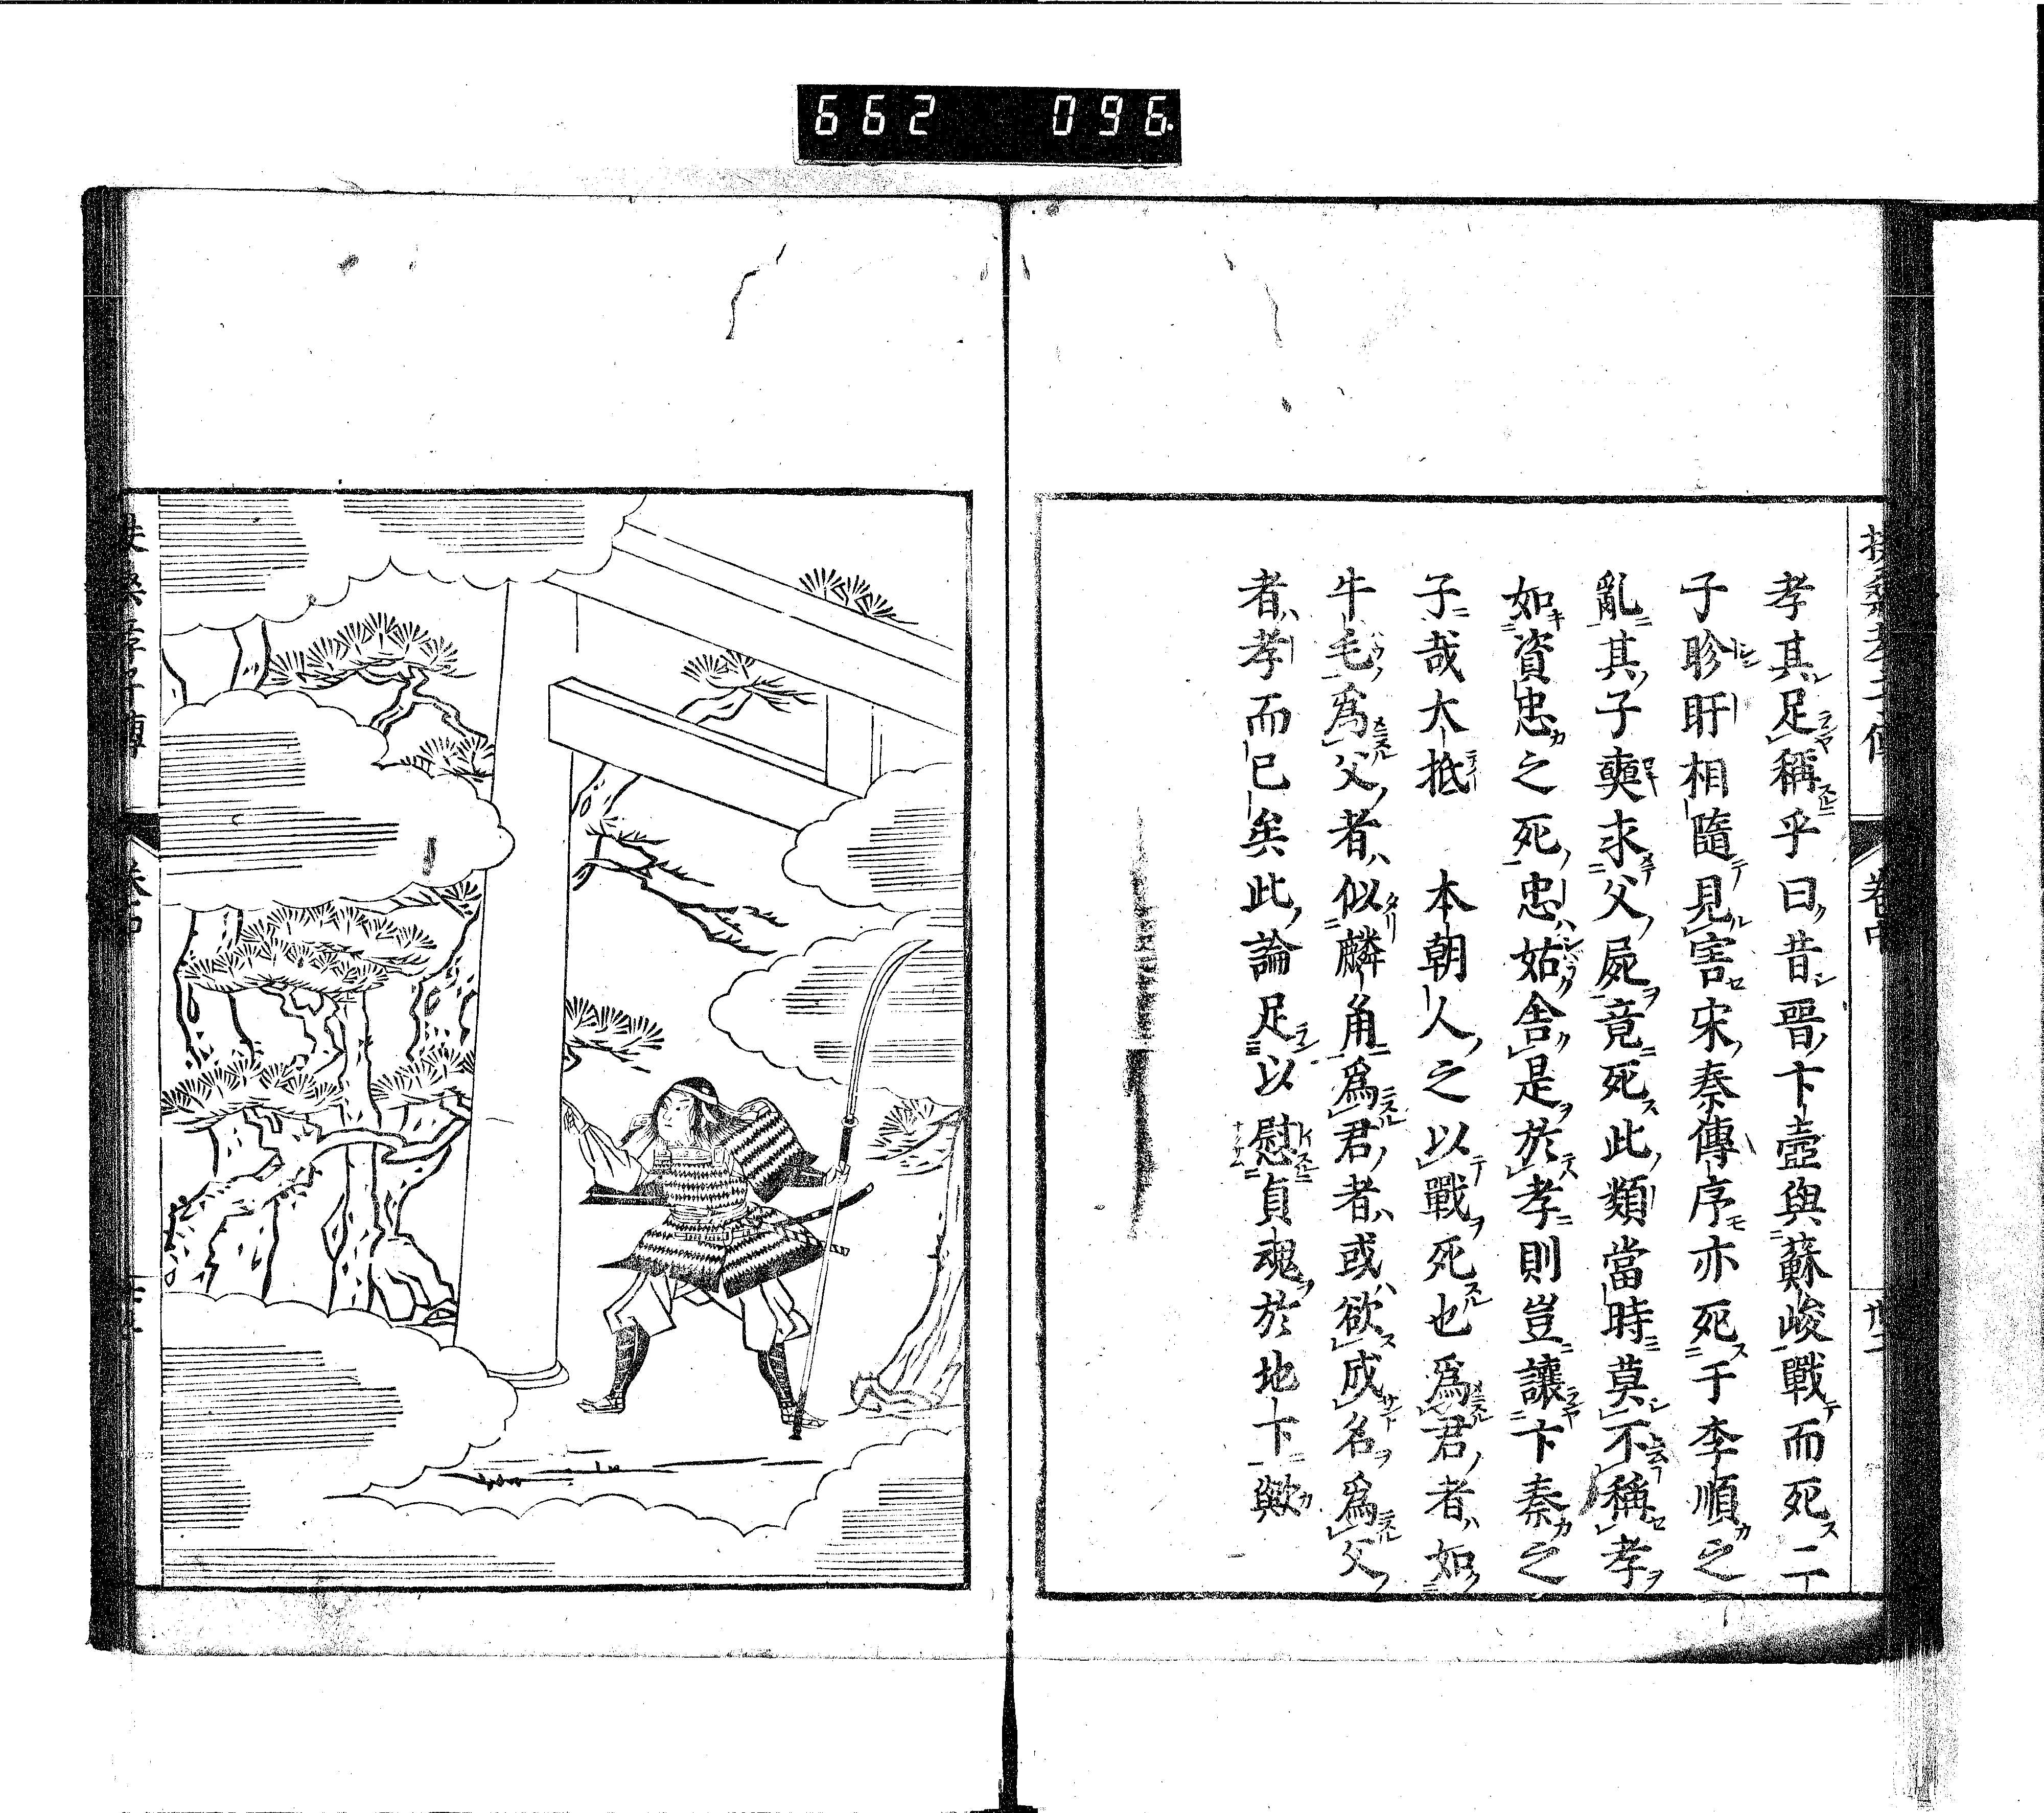 662 096
孝其足稱乎曰昔晉卞壼與蘇峻戰而死二
子眕盱相隨見害宋秦傳序亦死于李順之
亂其子奭求父屍竟死此類當時莫不稱孝
如資忠之死忠姑舍是於孝則豈讓卞秦之
子哉大抵 本朝人之以戰死也爲君者如
牛毛爲父者似麟角爲君者或欲成名爲父
者孝而已矣此論足以慰貞魂於地下歟